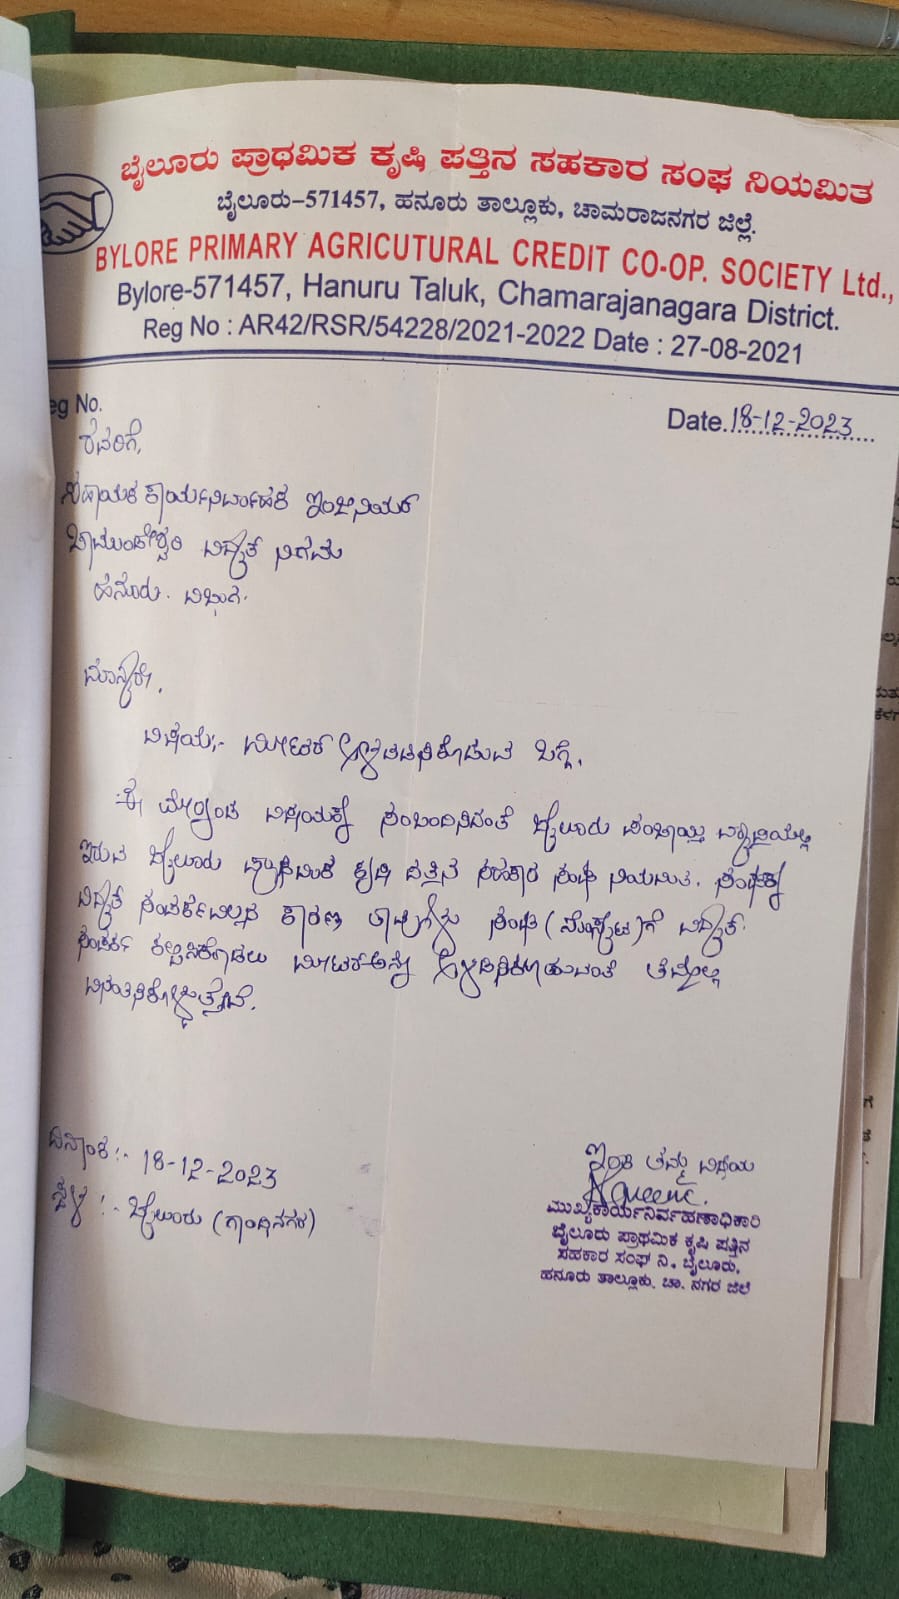 ಬೈಲೂರು ಪ್ರಾಥಮಿಕ ಕೃಷಿ ಪತ್ತಿನ ಸಹಕಾರ ಸಂಘ ನಿಯಮಿತ
ಬೈಲೂರು-571457, ಹನೂರು ತಾಲ್ಲೂಕು, ಚಾಮರಾಜನಗರ ಜಿಲ್ಲೆ.
BYLORE PRIMARY AGRICUTURAL CREDIT CO-OP. SOCIETY Ltd.,
Bylore-571457, Hanuru Taluk, Chamarajanagara District.
Reg No : AR42/RSR/54228/2021-2022 Date : 27-08-2021
eg No.
Date.18-12-2023
ರವರಿಗೆ,
ಸಹಾಯಕ ಕಾರ್ಯನಿರ್ವಾಹಕ ಇಂಜಿನಿಯರ್
ಚಾಮುಂಡೇಶ್ವರಿ ವಿದ್ಯುತ್ ನಿಗಮ
ಹನೂರು. ವಿಭಾಗ.
ಮಾನ್ಯರೇ,
ವಿಷಯ:- ಮೀಟರ್ ಬಗ್ಗೆ.
ಈ ಮೇಲ್ಕಂಡ ವಿಷಯಕ್ಕೆ ಸಂಬಂದಿಸಿದಂತೆ ಬೈಲೂರು ಪಂಚಾಯ್ತಿ ವ್ಯಾಪ್ತಿಯಲ್ಲಿ
ಇರುವ ಬೈಲೂರು ಪ್ರಾಥಮಿಕ ಕೃಷಿ ಪತ್ತಿನ ಸಹಕಾರ ಸಂಘ ನಿಯಮಿತ. ಸಂಘಕ್ಕೆ
ವಿದ್ಯುತ್ ಸಂಪರ್ಕವಿಲ್ಲದ ಕಾರಣ ತಾವುಗಳು ಸಂಘ (ಸೊಸೈಟಿ)ಗೆ ವಿದ್ಯುತ್
ಸಂಪರ್ಕ ಕಲ್ಪಿಸಿಕೊಡಲು ಮೀಟರ್‌ಅನ್ನು ತಮ್ಮಲ್ಲಿ
ವಿನಂತಿಸಿಕೊಳ್ಳುತ್ತೇವೆ.
ದಿನಾಂಕ:- 18-12-2023
ಸ್ಥಳ :- ಬೈಲೂರು (ಗಾಂಧಿನಗರ)
ಇಂತಿ ತಮ್ಮ ವಿಧೇಯ
ಮುಖ್ಯಕಾರ್ಯನಿರ್ವಹಣಾಧಿಕಾರಿ
ಬೈಲೂರು ಪ್ರಾಥಮಿಕ ಕೃಷಿ ಪತ್ತಿನ
ಸಹಕಾರ ಸಂಘ ನಿ., ಬೈಲೂರು,
ಹನೂರು ತಾಲ್ಲೂಕು. ಚಾ. ನಗರ ಜಿಲೆ